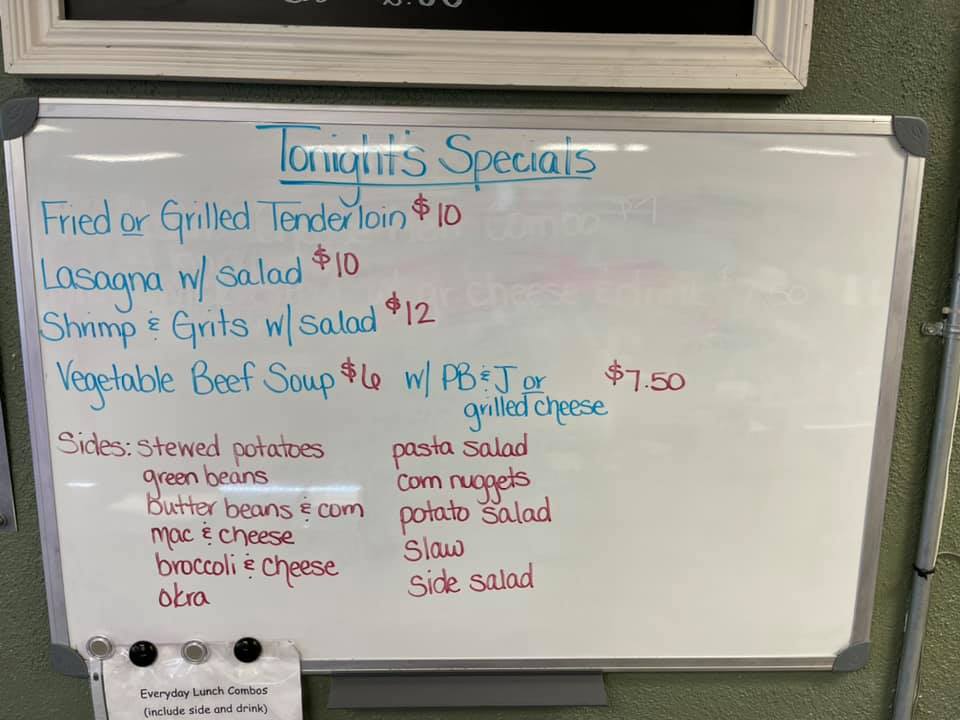 Tonight's Specials
Fried or Grilled Tenderloin $10
Lasagna w/ salad $10
Shrimp & Grits w/ salad $12
Vegetable Beef Soup $6 w/ PB & J or $7.50
grilled cheese
Sides: stewed potatoes
green beans
butter beans & corn
mac & cheese
broccoli & cheese
okra
pasta salad
corn nuggets
potato salad
slaw
side salad
Everyday Lunch Combos
(include side and drink)